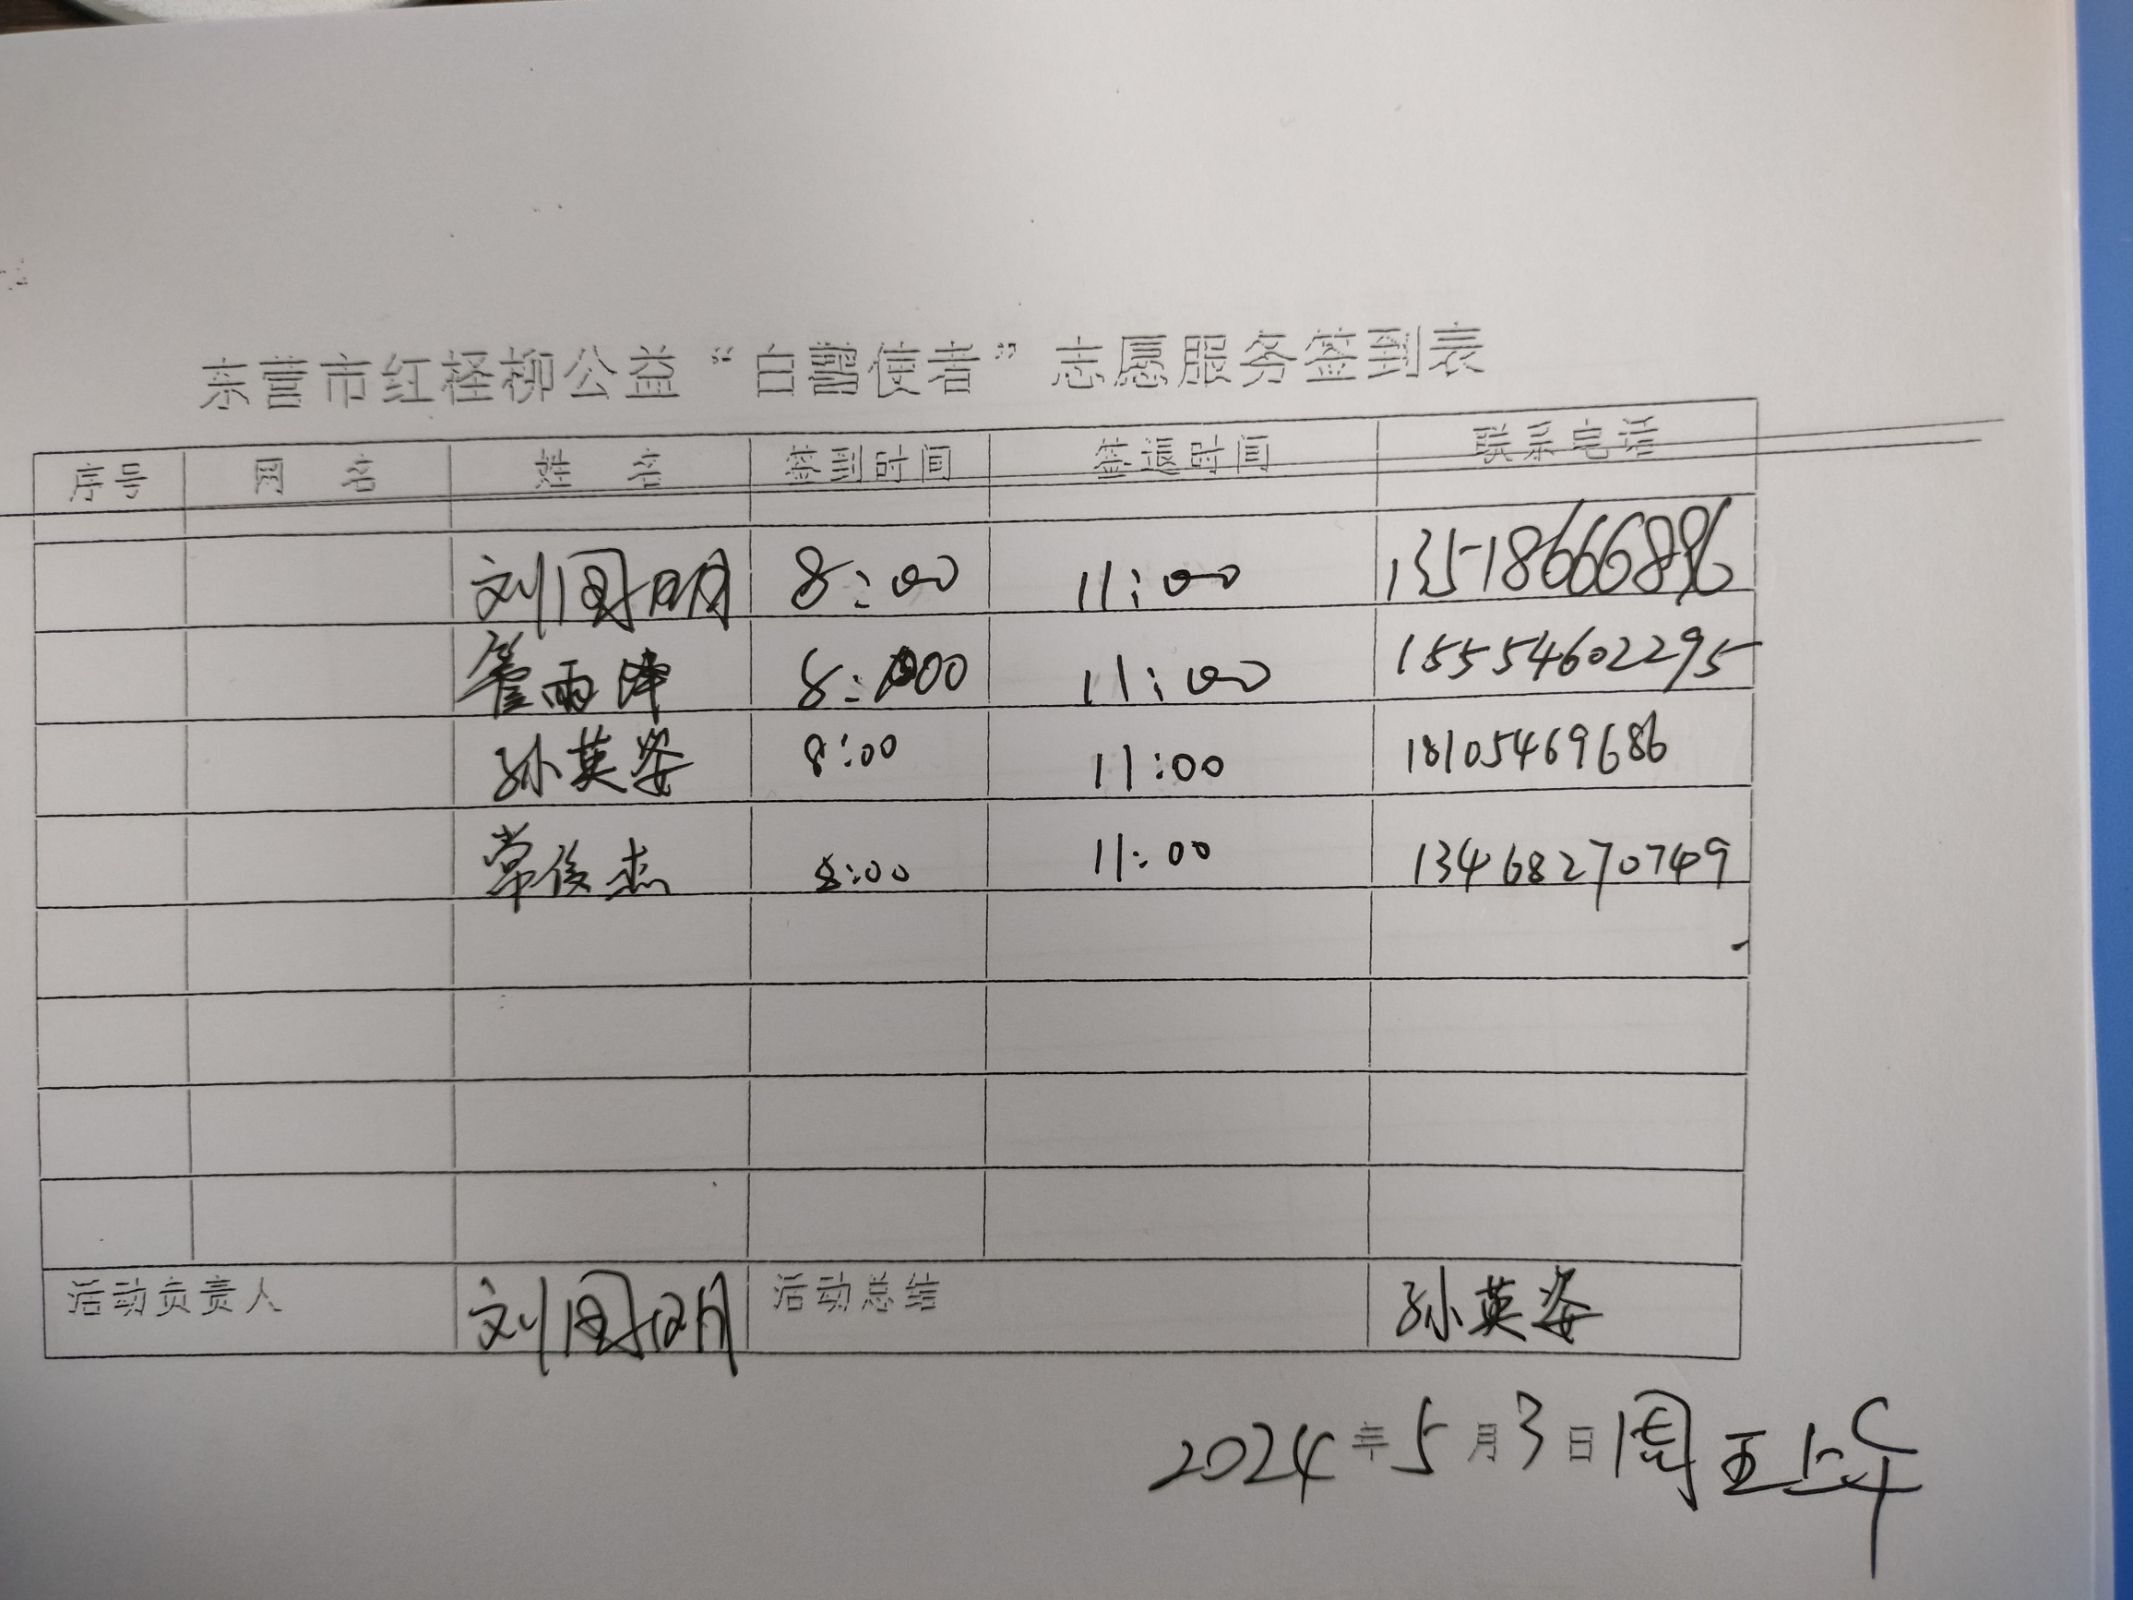 东营市红柽柳公益“白鹭使者”志愿服务签到表
序号 网 名 姓 名 签到时间 签退时间 联系电话
刘国明 8:00 11:00 13518666896
管雨泽 8:00 11:00 15554602295
孙英姿 8:00 11:00 18105469686
常俊杰 8:00 11:00 13468270749
活动负责人 刘国明 活动总结 孙英姿
2024年5月3日周五上午